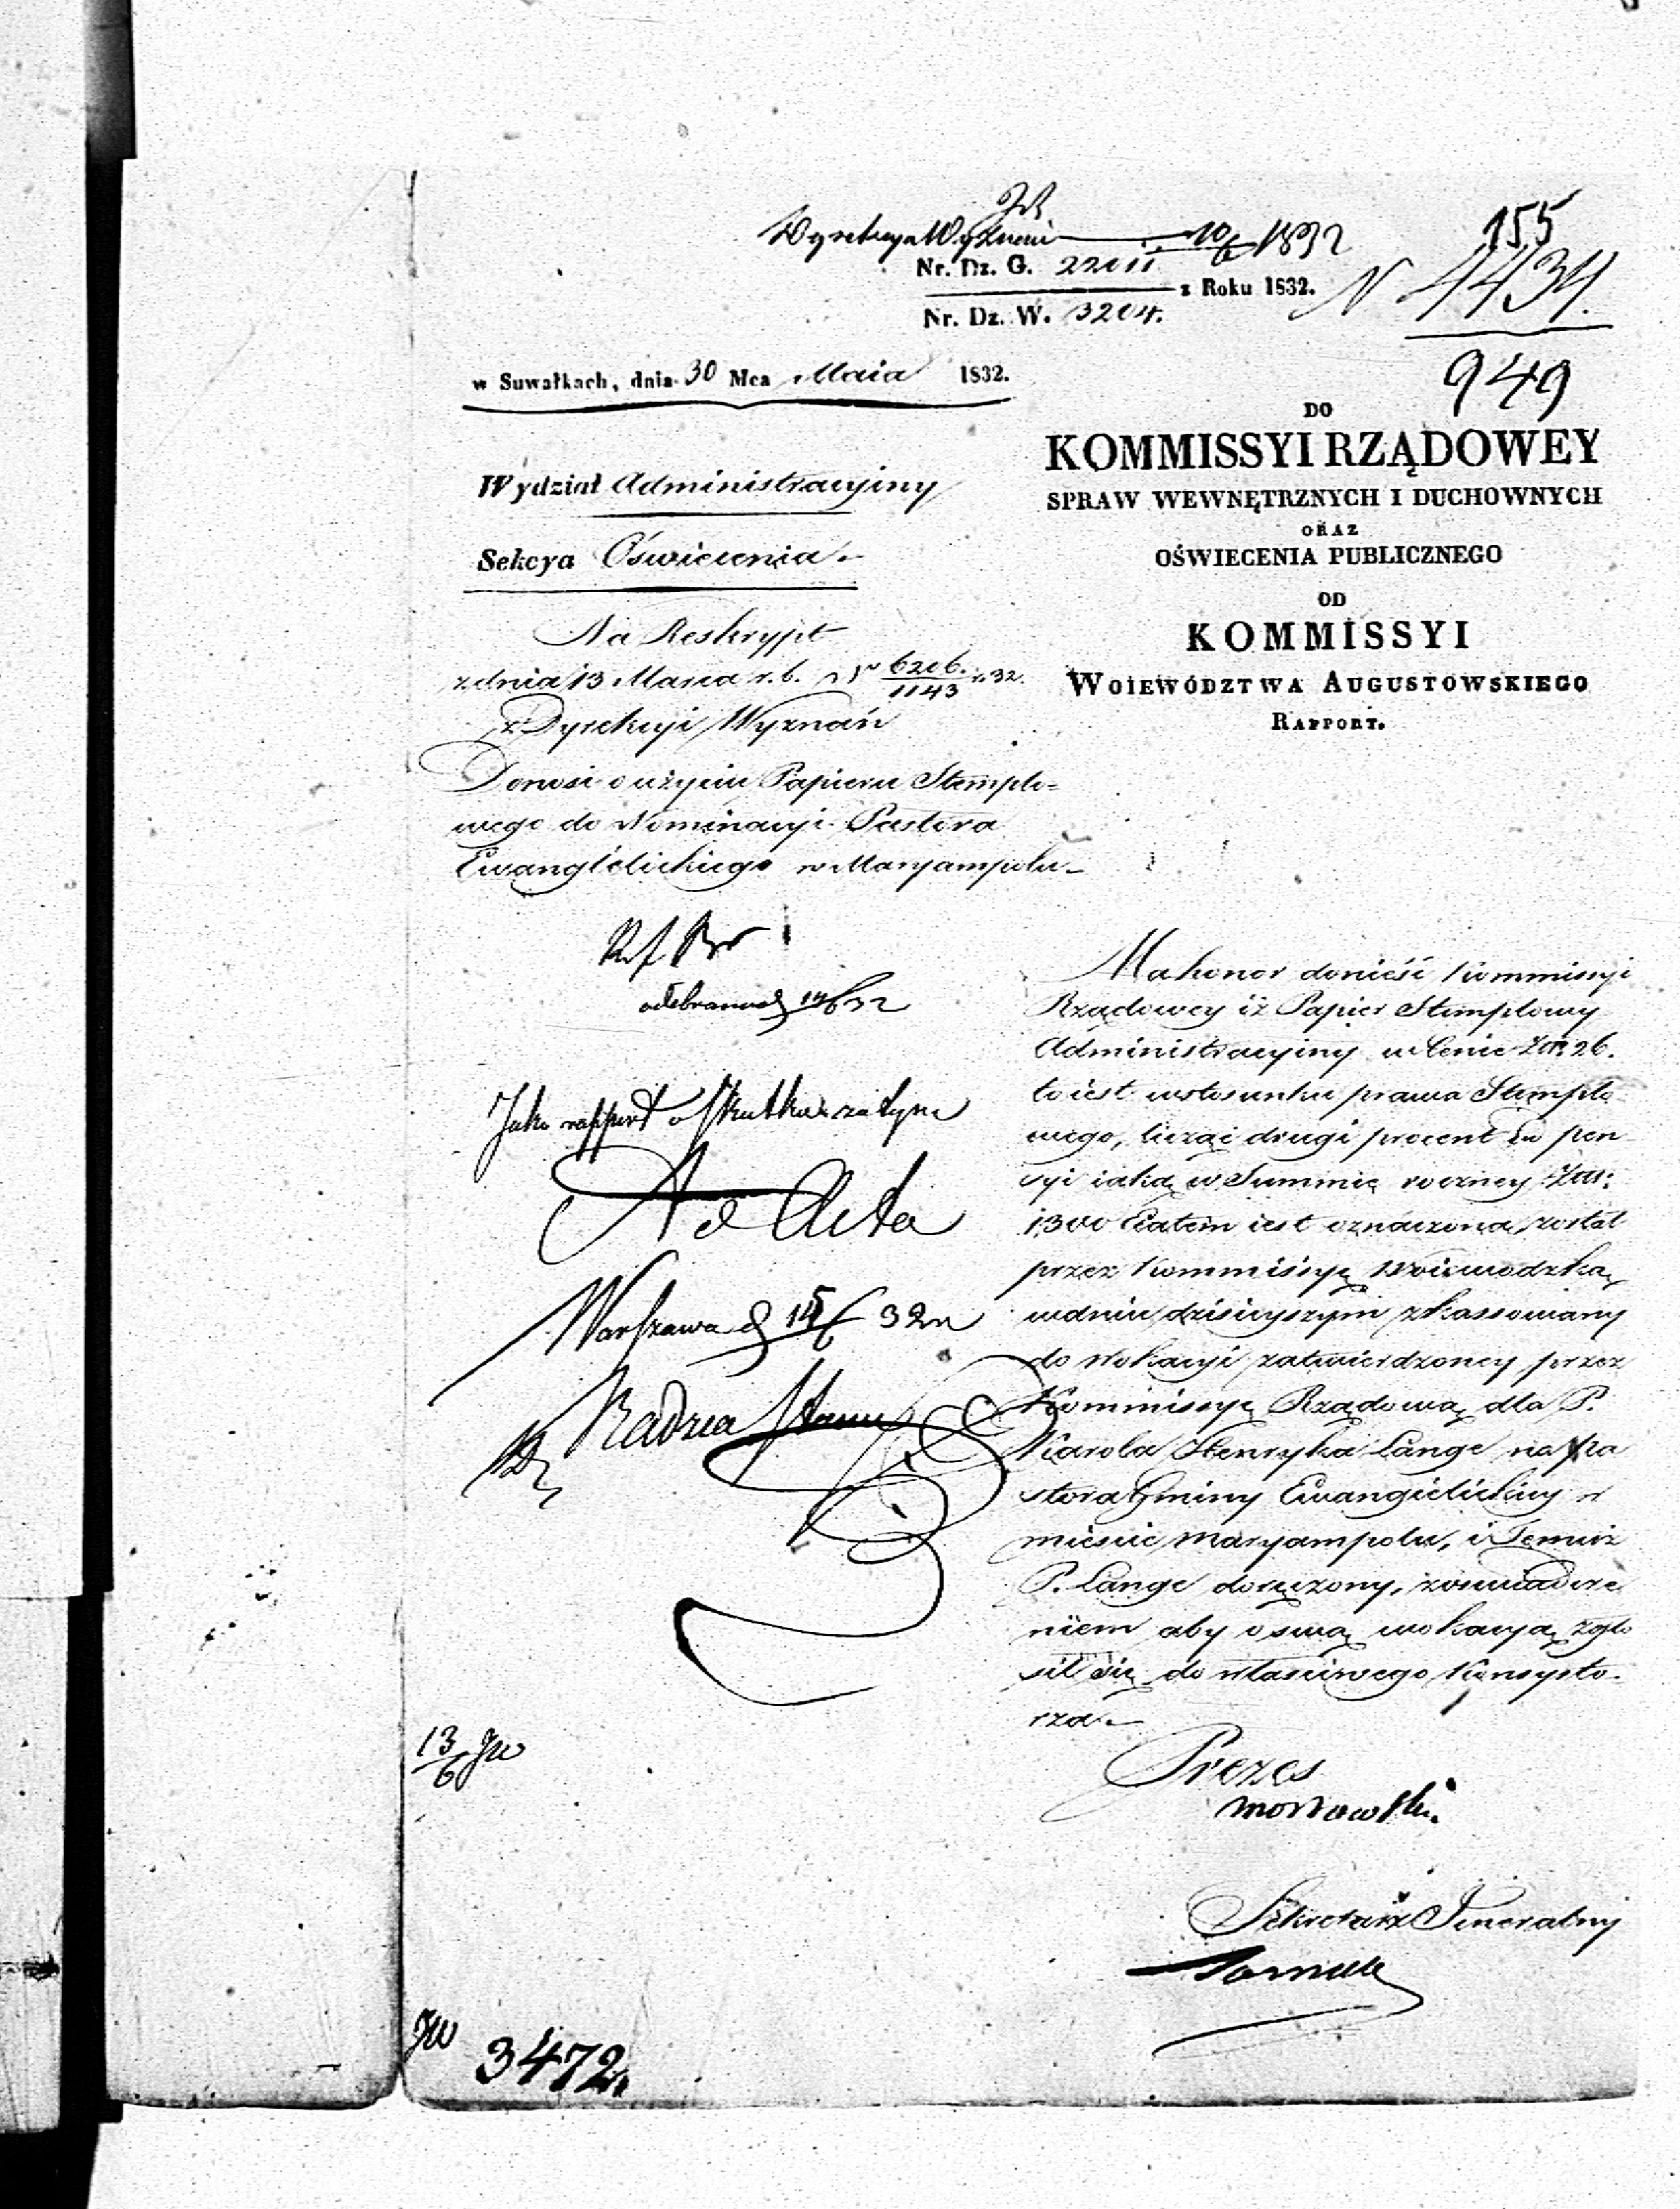 155
Dyrekcya Wyznań 10/6 1832
Nr. Dz. G. 22011
z Roku 1832.
Nr. Dz. W. 3204.
N 4434.
949
w Suwałkach, dnia 30 Mca Maia 1832.
DO
KOMMISSYI RZĄDOWEY
SPRAW WEWNĘTRZNYCH I DUCHOWNYCH
ORAZ
OŚWIECENIA PUBLICZNEGO
OD
KOMMISSYI
WOIEWÓDZTWA AUGUSTOWSKIEGO
RAPPORT.
Wydział Administracyjny
Sekcya Oświecenia
Na Reskrypt
z dnia 13 Marca r. b. N 6206./1143 32.
z Dyrekcyi Wyznań
Donosi o użyciu Papieru Stemplo=
wego do Nominacyi Pastora
Ewangielickiego w Maryampolu
odebrano d 14/6 32
Jako rapport o skutku
Ad Acta
Warszawa d 15/6 32
Radzca Stanu
Ma honor donieść Kommissyi
Rządowey iż Papier Stemplowy
Administracyiny w Cenie Złp. 26.
to iest w stosunku prawa Stemplo
wego, licząc drugi procent od pen
syi iaka w Summie roczney Złp.
1300 Etatem iest oznaczona, został
przez Kommissyę Woiewodzką
w dniu dzisieyszym zkassowany
do Wokacyi zatwierdzoney przez
Kommissyę Rządową dla P.
Karola Henryka Lange na Pa
stora Gminy Ewangielickiey w
mieście Maryampolu, i Temuż
P. Lange doręczony, z oswiadcze
niem aby o swą wokacyą zgło
sił się do właściwego Konsysto=
rza.
Prezes
Sekretarz Jeneralny
13/6
3472.